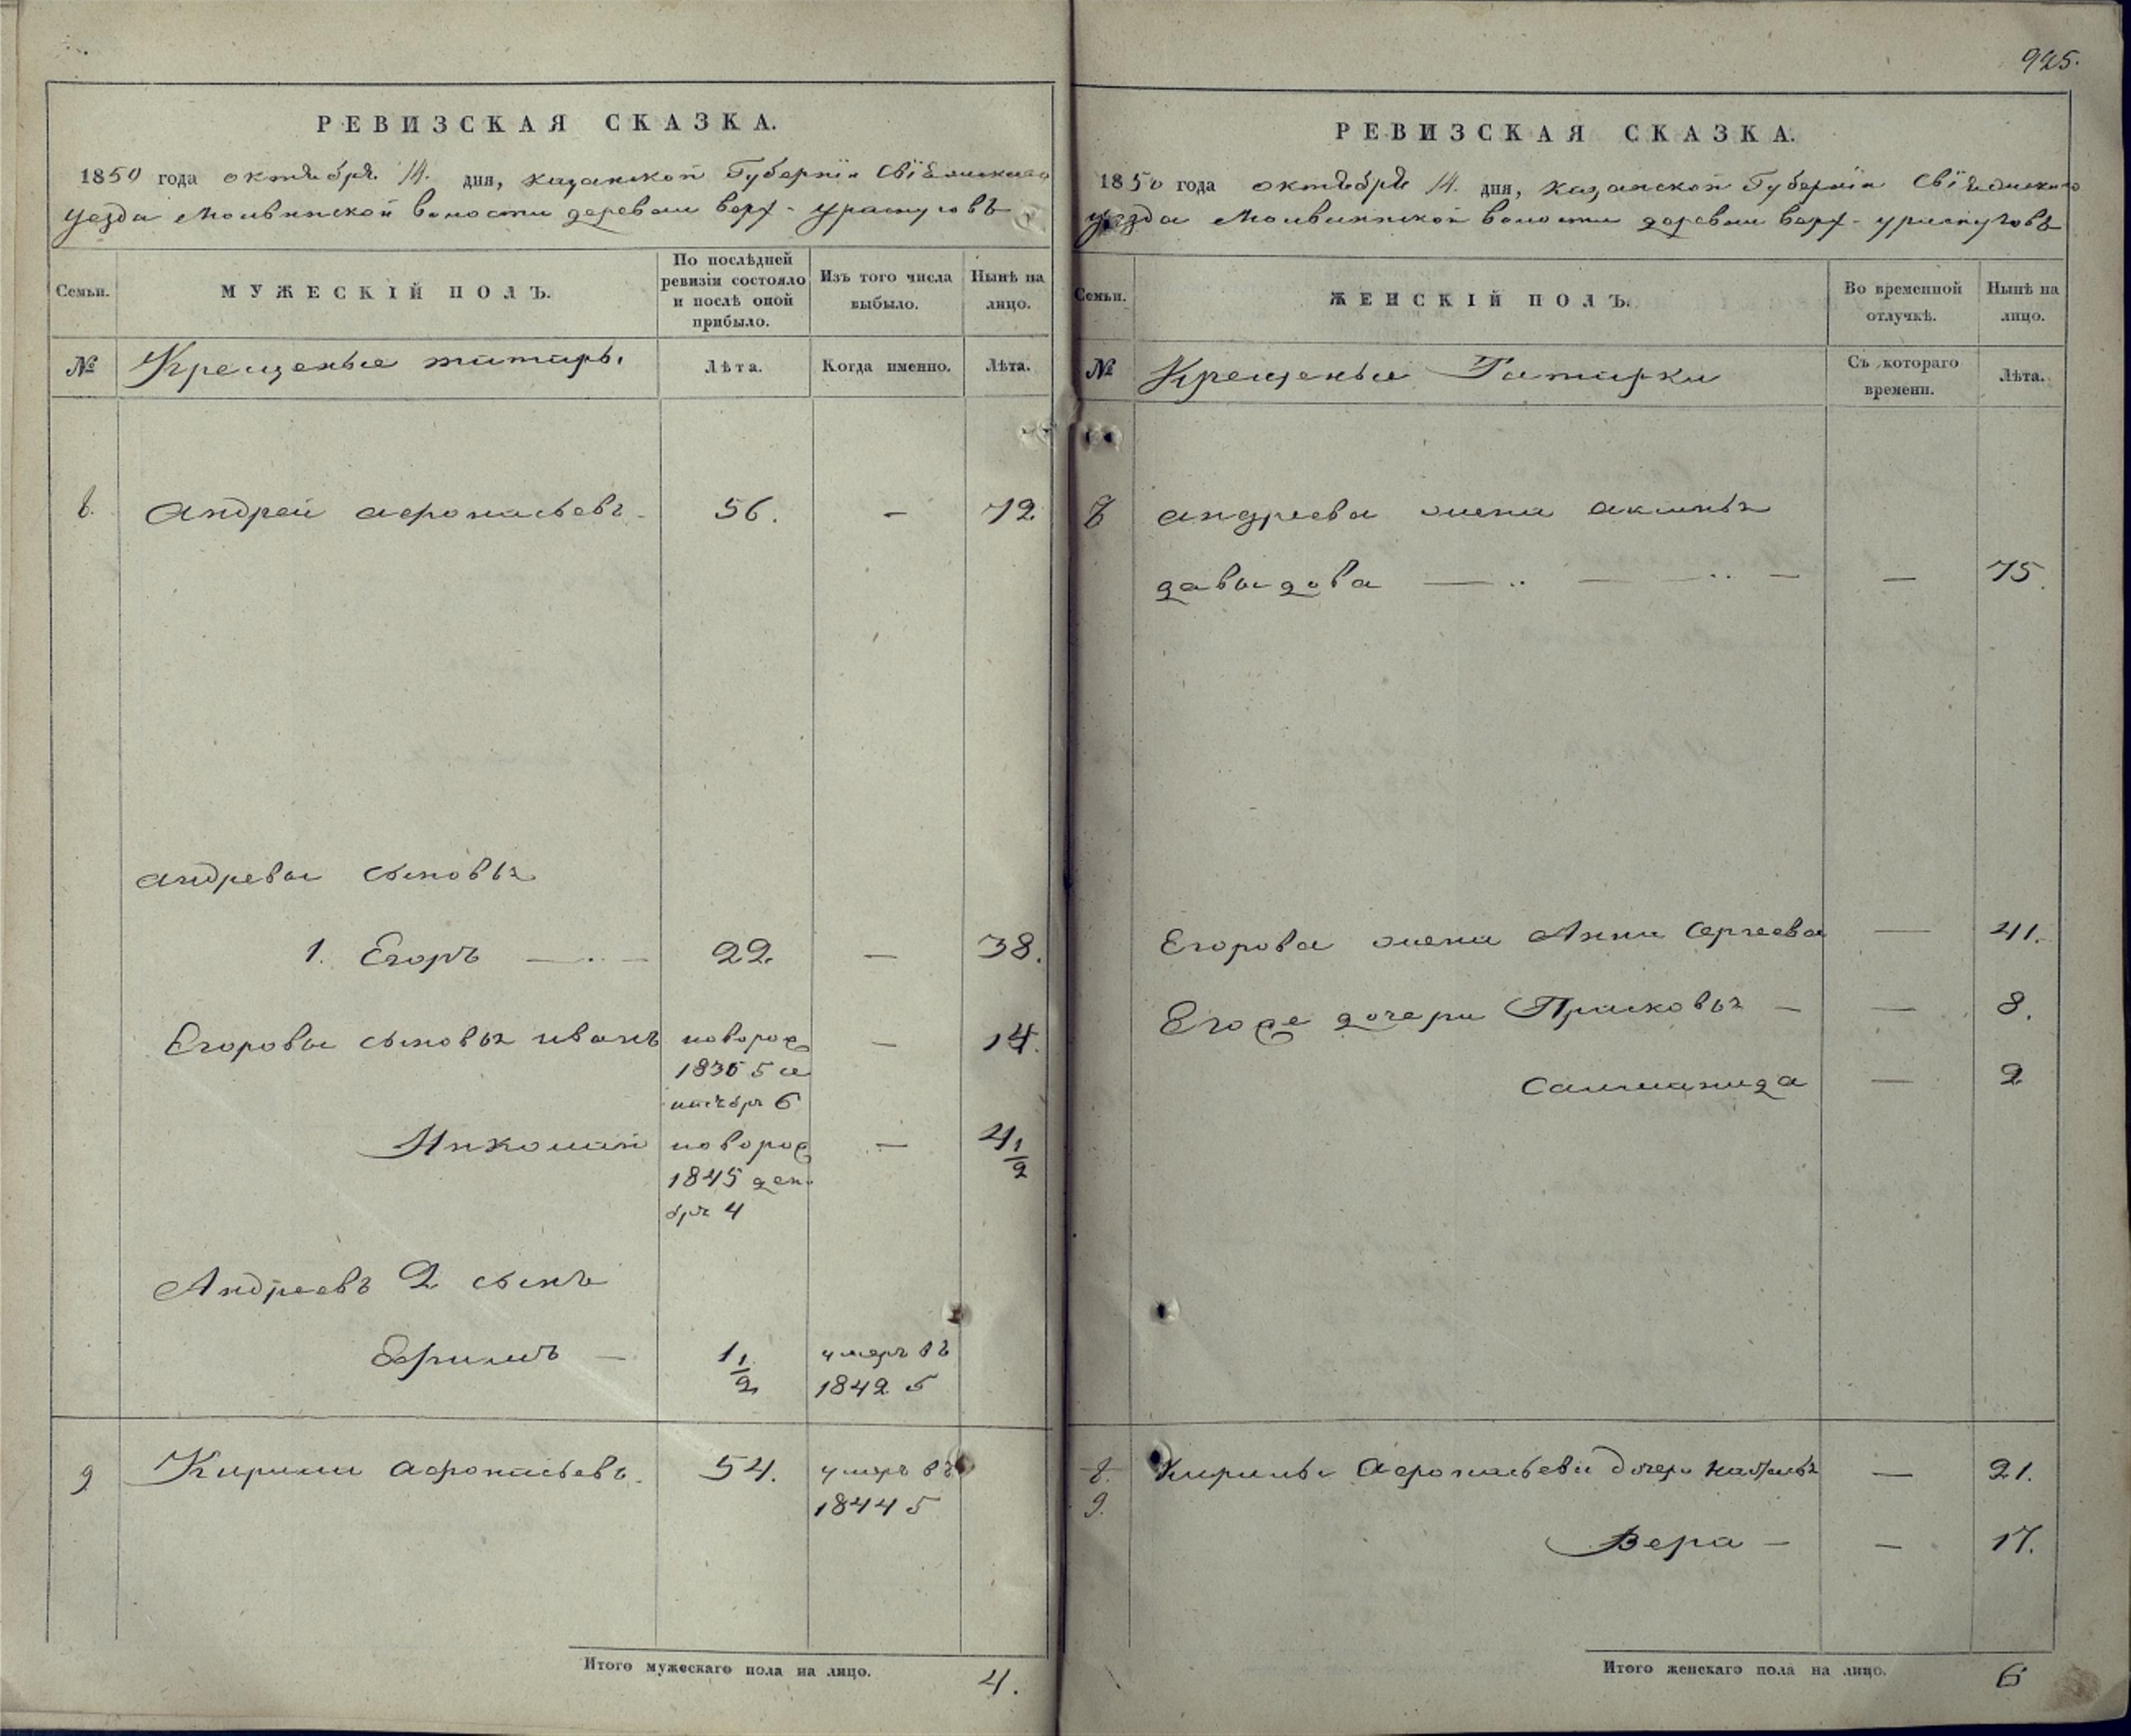 925.
РЕВИЗСКАЯ СКАЗКА.
1850 года октября 14. дня, казанской Губернiи Свiяжскаго
уезда Молвинской волости деревни верх-ураспуговъ
Семьи.
МУЖЕСКІЙ ПОЛЪ.
По послѣдней ревизіи состояло и послѣ оной прибыло.
Изъ того числа выбыло.
Нынѣ на лицо.
№ Крещеные татары. Лѣта. Когда именно. Лѣта.
8. Андрей афонасьевъ - 56. — 72
андревы сыновья
1. Егоръ — . — 22. — 38.
Егоровы сыновья иванъ новорож — 14.
1836 г. се
нтебря 6
Николай новорож — 4 1/2
1845 дек.
бря 4
Андреевъ 2 сынъ
Ефимъ — 1 1/2 умеръ въ
1842 г.
9 Кирили афонасьевъ. 54. умеръ въ
1844 г.
Итого мужескаго пола на лицо. 4.
РЕВИЗСКАЯ СКАЗКА.
1850 года октября 14. дня, казанской Губернiи Свiяжскаго
уезда Молвинской волости деревни верх-ураспуговъ
Семьи.
ЖЕНСКІЙ ПОЛЪ.
Во временной отлучкѣ.
Нынѣ на лицо.
№ Крещеные Татарки Съ котораго времени. Лѣта.
8 андреева жена аксинья
давыдова — .. — .. — — 75.
Егорова жена Анна Сергеева — 41.
Его же дочери Прасковья — — 8.
Саломанида — 2
8. Кирилы Афонасьева дочери Наталья — 21.
9.
Вера — — 17.
Итого женскаго пола на лицо. 6